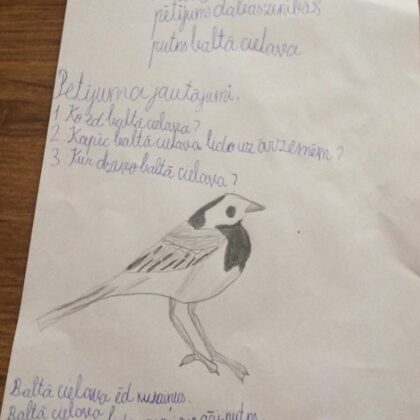 pētījums dabaszinībās
putns baltā cielava
Pētījuma jautājumi.
1 Ko ēd baltā cielava?
2. Kāpēc baltā cielava lido uz ārzemēm?
3. Kur dzīvo baltā cielava?
Baltā cielava ēd kukaiņus.
Baltā cielava